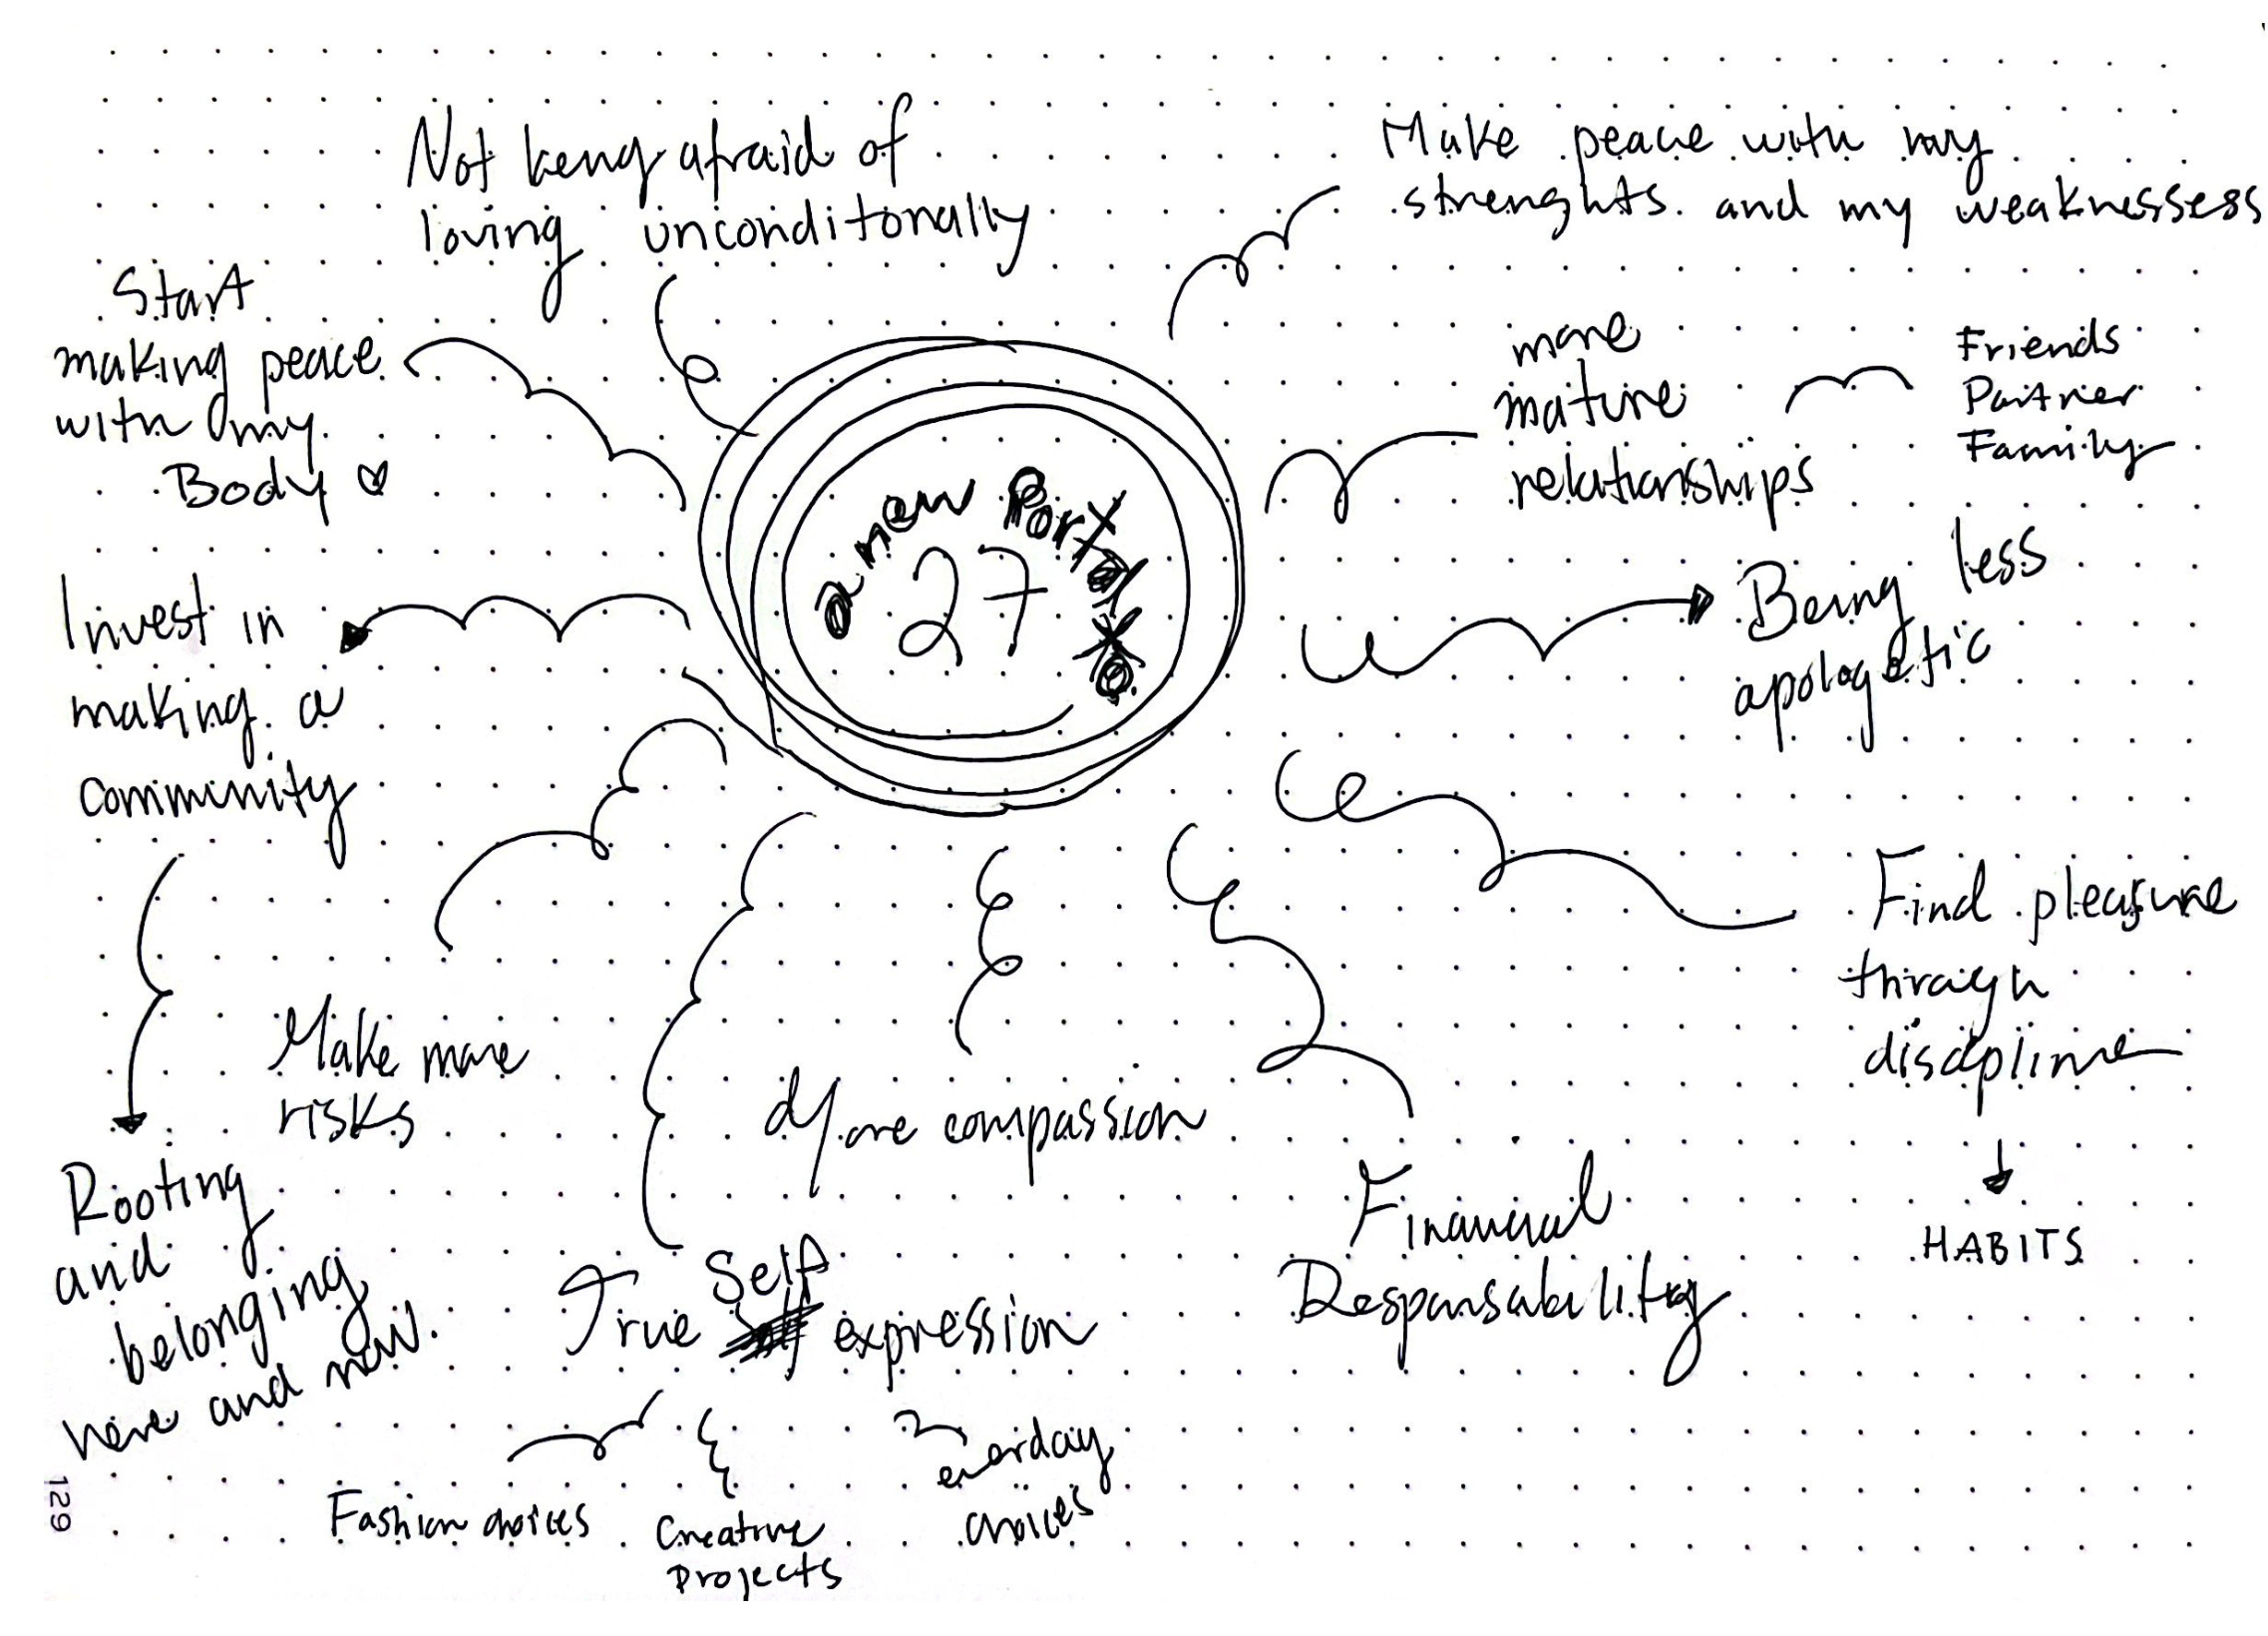 Not being afraid of
loving unconditonally
Make peace with my
strenghts and my weaknessess
Start
making peace
with my
Body
more
mature
relationships
Friends
Partner
Family
a new Portal
27
Invest in
making a
community
Being less
apologetic
Find pleasure
through
discipline
HABITS
Make more
risks
More compassion
Financial
Responsability
Rooting
and
belonging
here and now.
True Self expression
Fashion choices
Creative
Projects
everday
choices
129